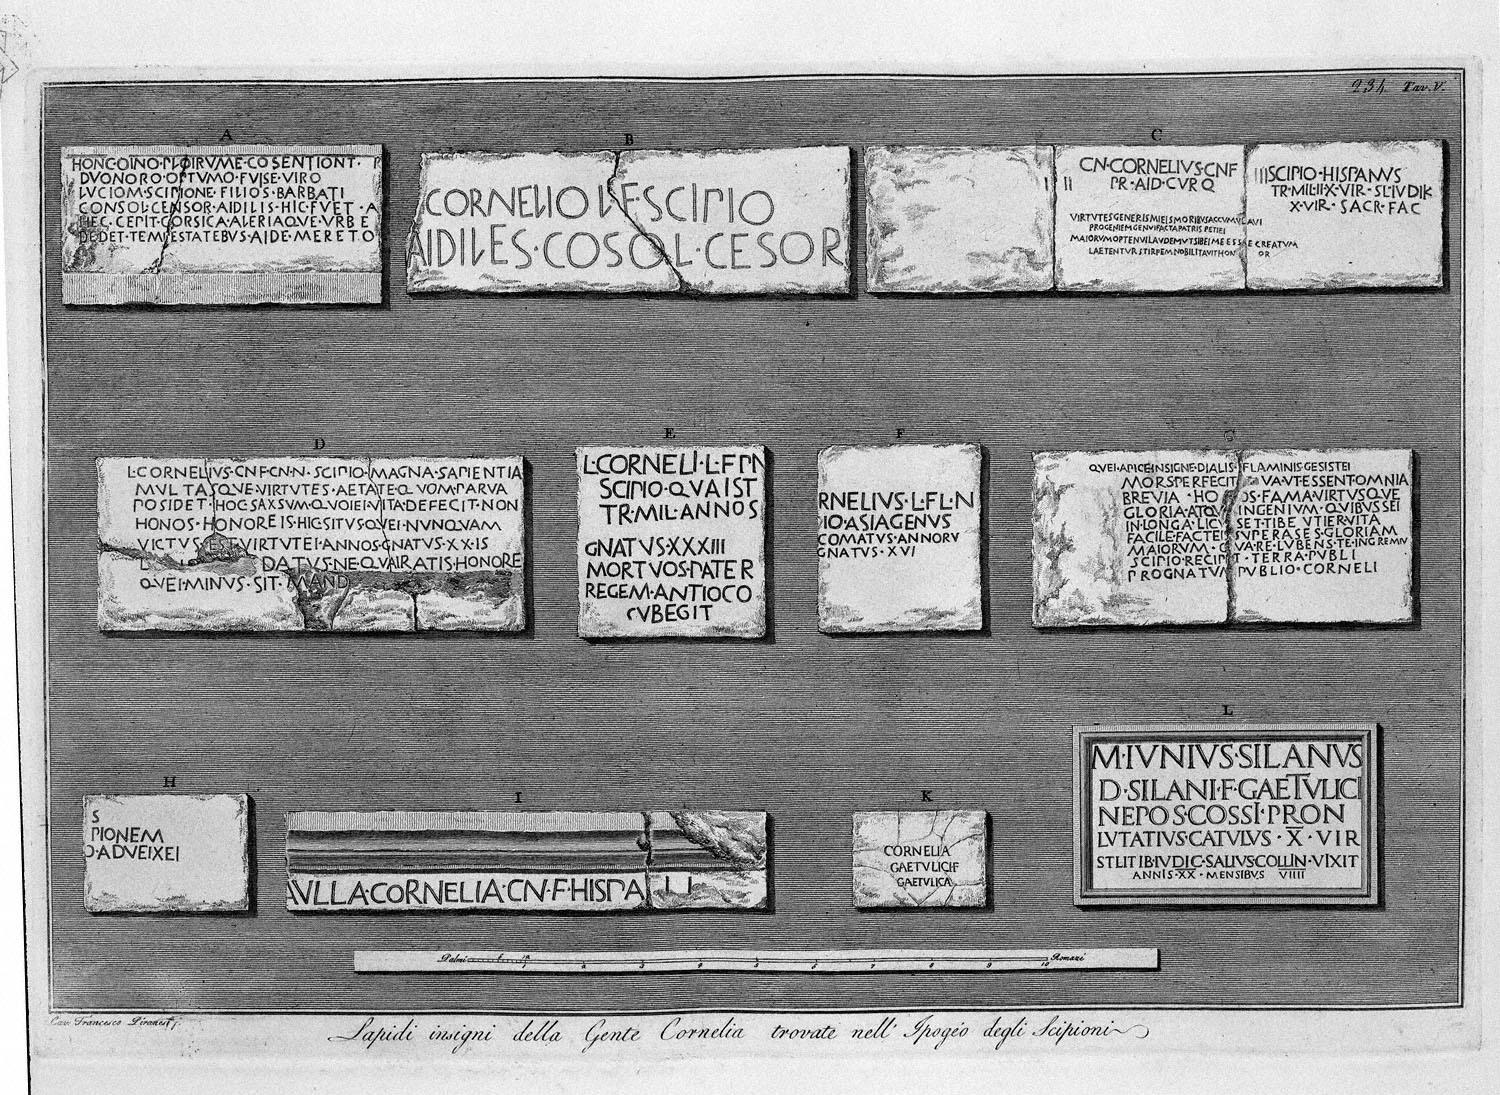 234 Tav. V.
A
HONC·OINO·PLOIRVME·COSENTIONT· R
DVONORO·OPTVMO·FVISE·VIRO
LVCIOM·SCIPIONE·FILIOS·BARBATI
CONSOL·CENSOR·AIDILIS·HIC·FVET·A
HEC·CEPIT·CORSICA·ALERIAQVE·VRBE
DEDET·TEMPESTATEBVS·AIDE·MERETO
B
CORNELIO·L·F·SCIPIO
AIDILES·COSOL·CESOR
C
CN·CORNELIVS·CNF SCIPIO·HISPANVS
PR·AID·CVR Q TR·MIL·II·X·VIR·SL·IVDIK
X·VIR·SACR·FAC
VIRTVTES GENERIS MIEIS MORIBVS ACCVMVLAVI
PROGENIEM GENVI FACTA PATRIS PETIEI
MAIORVM OPTENVI LAVDEM VT SIBEI ME ESSE CREATVM
LAETENTVR STIRPEM NOBILITAVIT HONOR
D
L·CORNELIVS·CN·F·CN·N·SCIPIO·MAGNA·SAPIENTIA
MVLTASQVE·VIRTVTES·AETATE·QVOM·PARVA
POSIDET·HOC·SAXSVM·QVOIEI·VITA·DEFECIT·NON
HONOS·HONORE IS·HIC·SITVS·QVEI·NVNQVAM
VICTVS·EST·VIRTVTEI·ANNOS·GNATVS·XX·IS
L DATVS·NE·QVAIRATIS·HONORE
QVEI·MINVS·SIT·MAND
E
L·CORNELI·L·F·PN
SCIPIO·QVAIST
TR·MIL·ANNOS
GNATVS·XXXIII
MORTVOS·PATER
REGEM·ANTIOCO
SVBEGIT
F
RNELIVS·L·F·L·N
IO·ASIAGENVS
COMATVS·ANNORV
GNATVS·XVI
G
QVEI·APICE·INSIGNE·DIALIS·FLAMINIS·GESISTEI
MORS PERFECIT VA·VT·ESSENT·OMNIA
BREVIA·HO OS·FAMA·VIRTVSQVE
GLORIA·ATQV INGENIVM·QVIBVS SEI
IN·LONGA·LICV SET·TIBE VTIER VITA
FACILE·FACTEI SVPERASES·GLORIAM
MAIORVM·QVA·RE·LVBENS·TE·IN GREMIV
SCIPIO·RECIPIT·TERRA·PVBLI
PROGNATVM PVBLIO·CORNELI
H
S
PIONEM
O·ADVEIXEI
I
AVLLA·CORNELIA·CN·F·HISPALLI
K
CORNELIA
GAETVLICI F
GAETVLICA
L
M·IVNIVS·SILANVS
D·SILANI·F·GAETVLICI
NEPOS·COSSI·PRON
LVTATIVS·CATVLVS·X·VIR
STLITIB·IVDIC·SALIVS COLLIN·VIXIT
ANNIS·XX·MENSIBVS VIIII
Palmi 1 2 3 4 5 6 7 8 9 10 Romani
Cav. Francesco Piranesi f.
Lapidi insigni della Gente Cornelia trovate nell' Ipogéo degli Scipioni